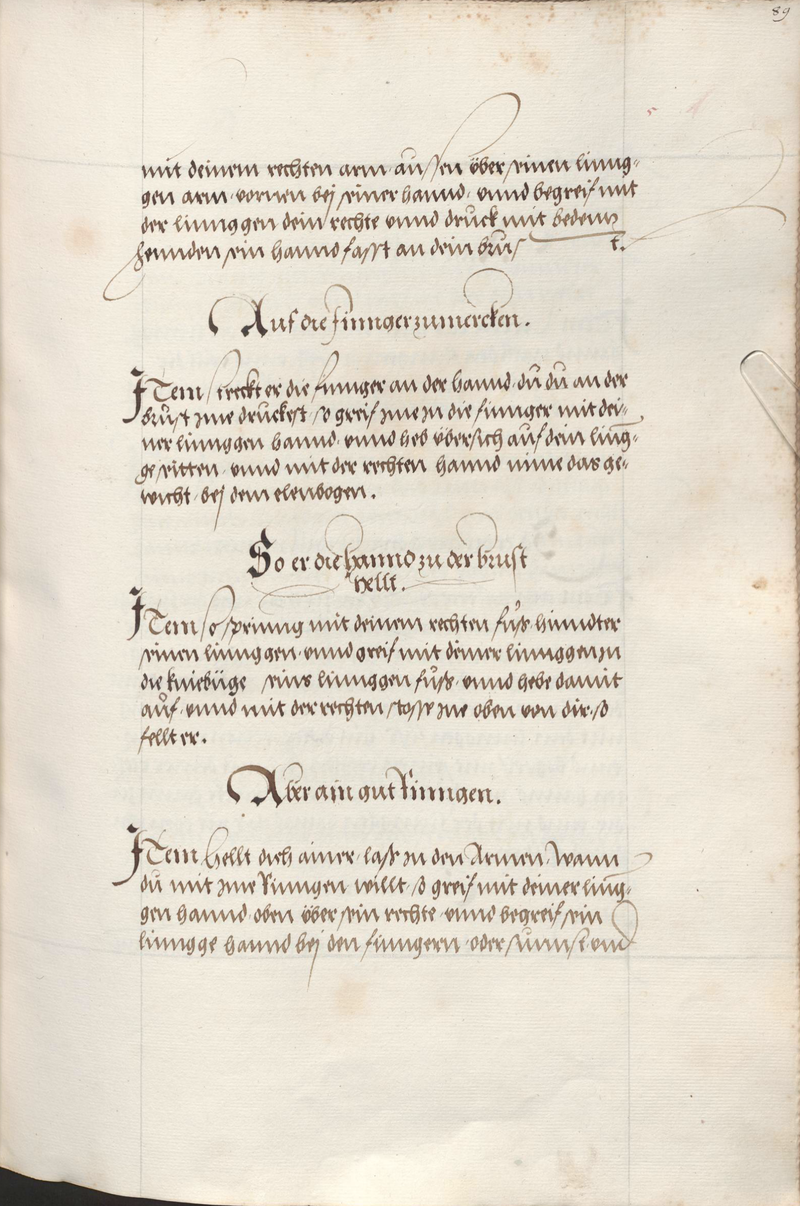 89
mit deinem rechten arm aussen über seinen linng-
gen arm vornen bej seiner hannd, vnnd begreif mit
der linnggen dein rechte vnnd druck mit beden
hennden sein hannd fasst an dein brust.
Auf die finnger zu mercken.
JTem streckt er die finnger an der hannd, dü dü an der
brust jme druckest, so greif jme jn die finnger mit dei-
ner linnggen hannd, vnnd heb übersich auf dein ling-
ge seitten, vnnd mit der rechten hannd nime das ge-
wicht, bej dem elenbogen.
So er die hannd zu der brust
hellt.
JTem so spring mit deinem rechten füß hinndter
seinen linnggen, vnnd greif mit deiner linnggen jn
die kniebüge seins linnggen füß, vnnd hebe damit
auf, vnnd mit der rechten stosse jne oben von dir, so
fellt er.
Aber ain gut Rinngen.
JTem hellt dich ainer, lasß jn den Armen, Wann
dü mit jme Rinngen willt, so greif mit deiner ling-
gen hannd, oben über sein rechte, vnnd begreif sein
linngge hannd bej den finngern, oder sünnst, vnd